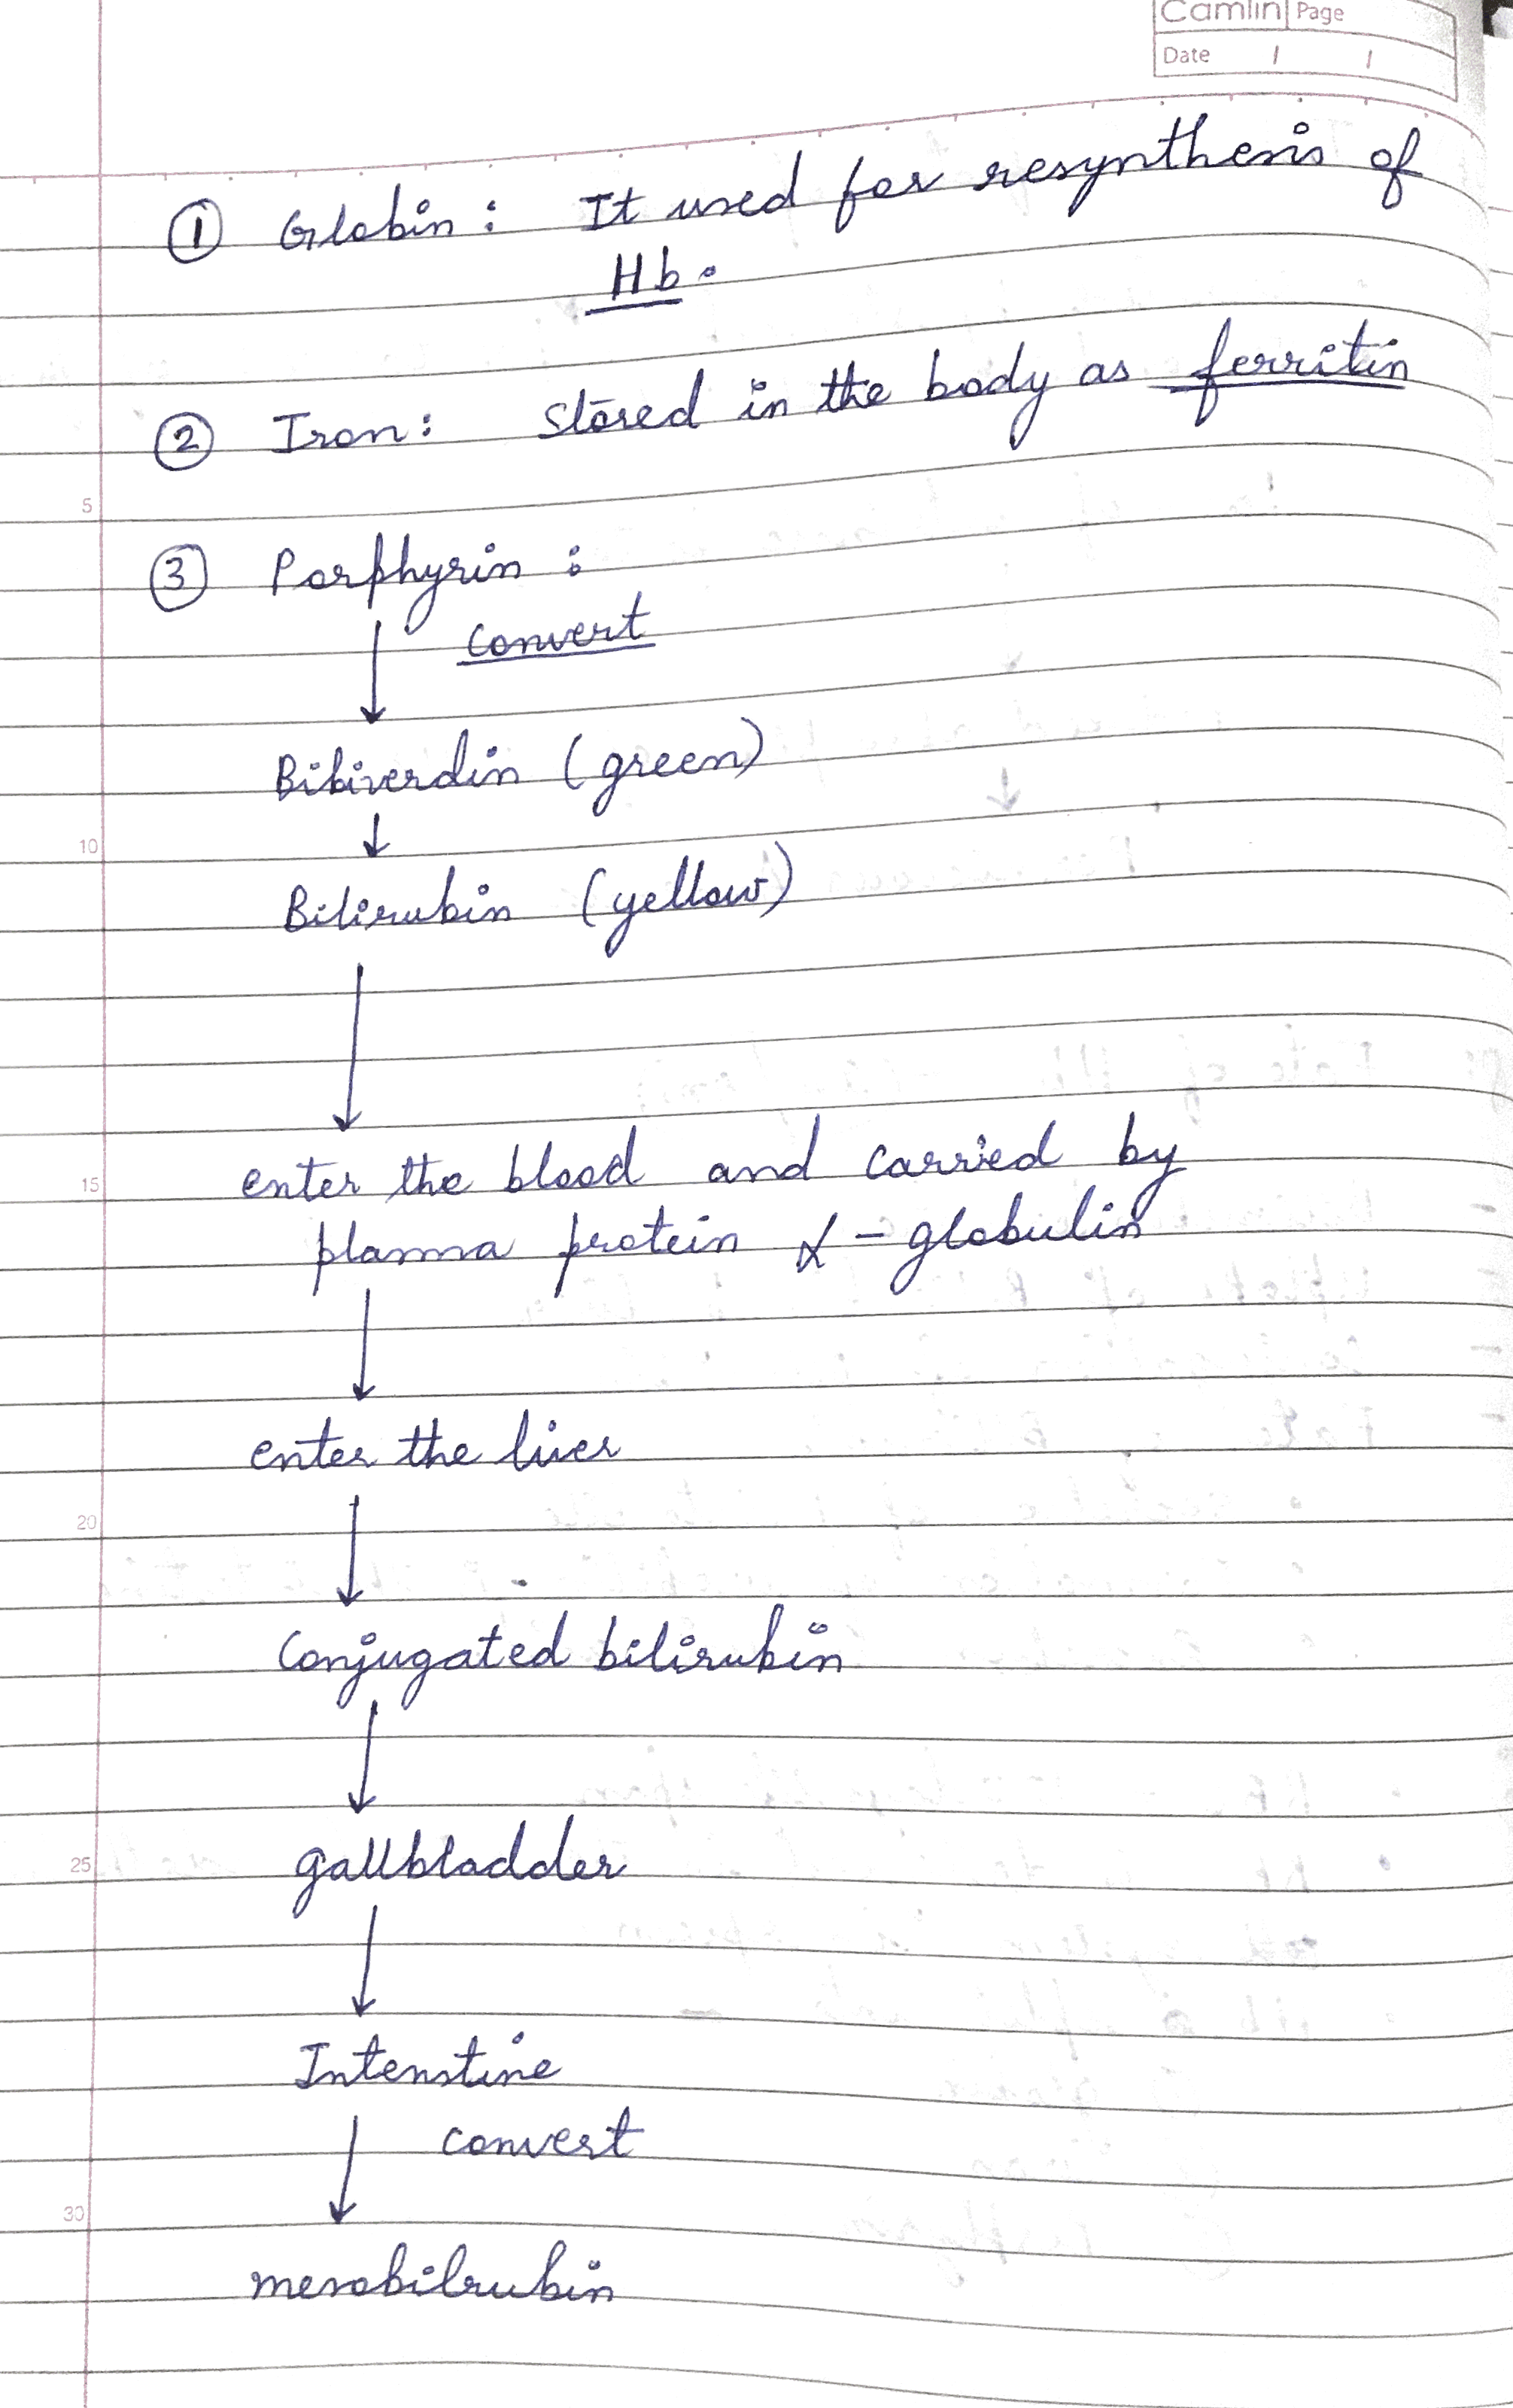 Camlin Page
Date / /
① Globin : It used for resynthesis of
Hb.
② Iron : Stored in the body as ferritin
5
③ Porphyrin :
convert
Bibiverdin (green)
10
Bilirubin (yellow)
enter the blood and carried by
15
plasma protein α - globulin
enter the liver
20
Conjugated bilirubin
gallbladder
25
Intenstine
convert
30
mesobilrubin